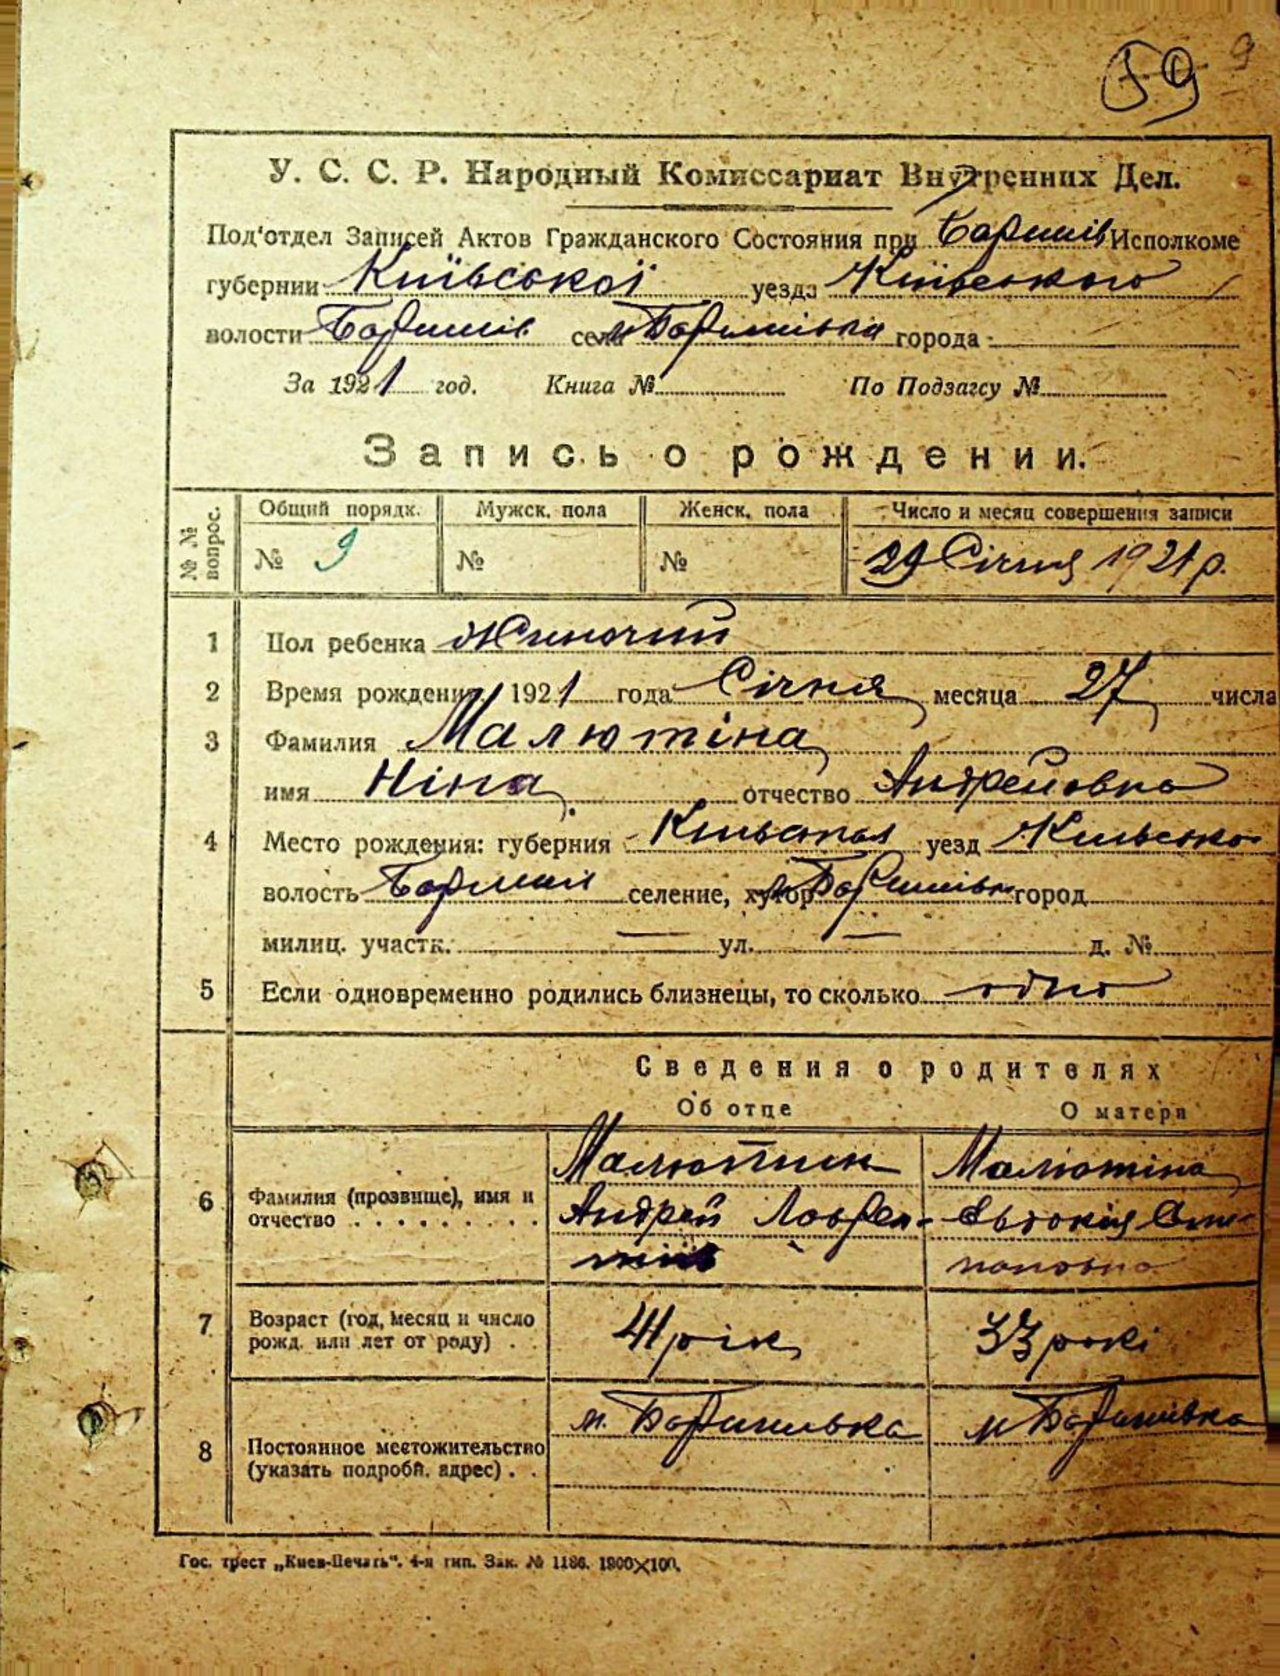 59 9
У. С. С. Р. Народный Комиссариат Внутренних Дел.
Под'отдел Записей Актов Гражданского Состояния при Баришів Исполкоме
губернии Київської уезда Київського
волости Баришів села м Баришівка города
За 1921 год. Книга № По Подзагсу №
Запись о рождении.
№ № вопрос. Общий порядк. Мужск. пола Женск. пола Число и месяц совершения записи
№ 9 № № 29 Січня 1921 р.
1 Пол ребенка Жиночий
2 Время рождения 1921 года Січня месяца 27 числа
3 Фамилия Малютіна
имя Ніна отчество Андрейовна
4 Место рождения: губерния Київская уезд Київсько
волость Баришів селение, хутор м Баришівк город
милиц. участк. — ул. — д. №
5 Если одновременно родились близнецы, то сколько одно
Сведения о родителях
Об отце О матери
Малютин Малютіна
6 Фамилия (прозвище), имя и Андрей Лаврен- Євтокія Сте-
отчество . . . . . . . . . . тіїв пановна
7 Возраст (год, месяц и число 41 рік 33 рокі
рожд. или лет от роду) . .
м. Баришівка м Баришівка
8 Постоянное местожительство
(указать подробн. адрес) . .
Гос. трест „Киев-Печать“. 4-я тип. Зак. № 1186. 1800×100.